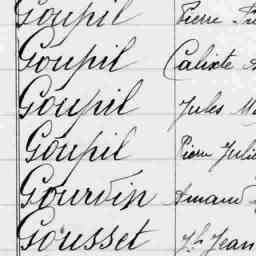 Goupil Pierre
Goupil Calixte
Goupil Jules
Goupil Pierre
Gourdin Amand
Gousset Jh Jean